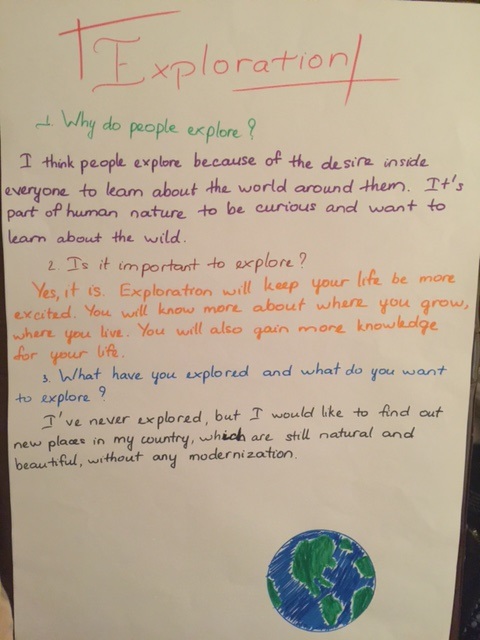 Exploration
1. Why do people explore?
I think people explore because of the desire inside
everyone to learn about the world around them. It's
part of human nature to be curious and want to
learn about the wild.
2. Is it important to explore?
Yes, it is. Exploration will keep your life be more
excited. You will know more about where you grow,
where you live. You will also gain more knowledge
for your life.
3. What have you explored and what do you want
to explore?
I've never explored, but I would like to find out
new places in my country, which are still natural and
beautiful, without any modernization.